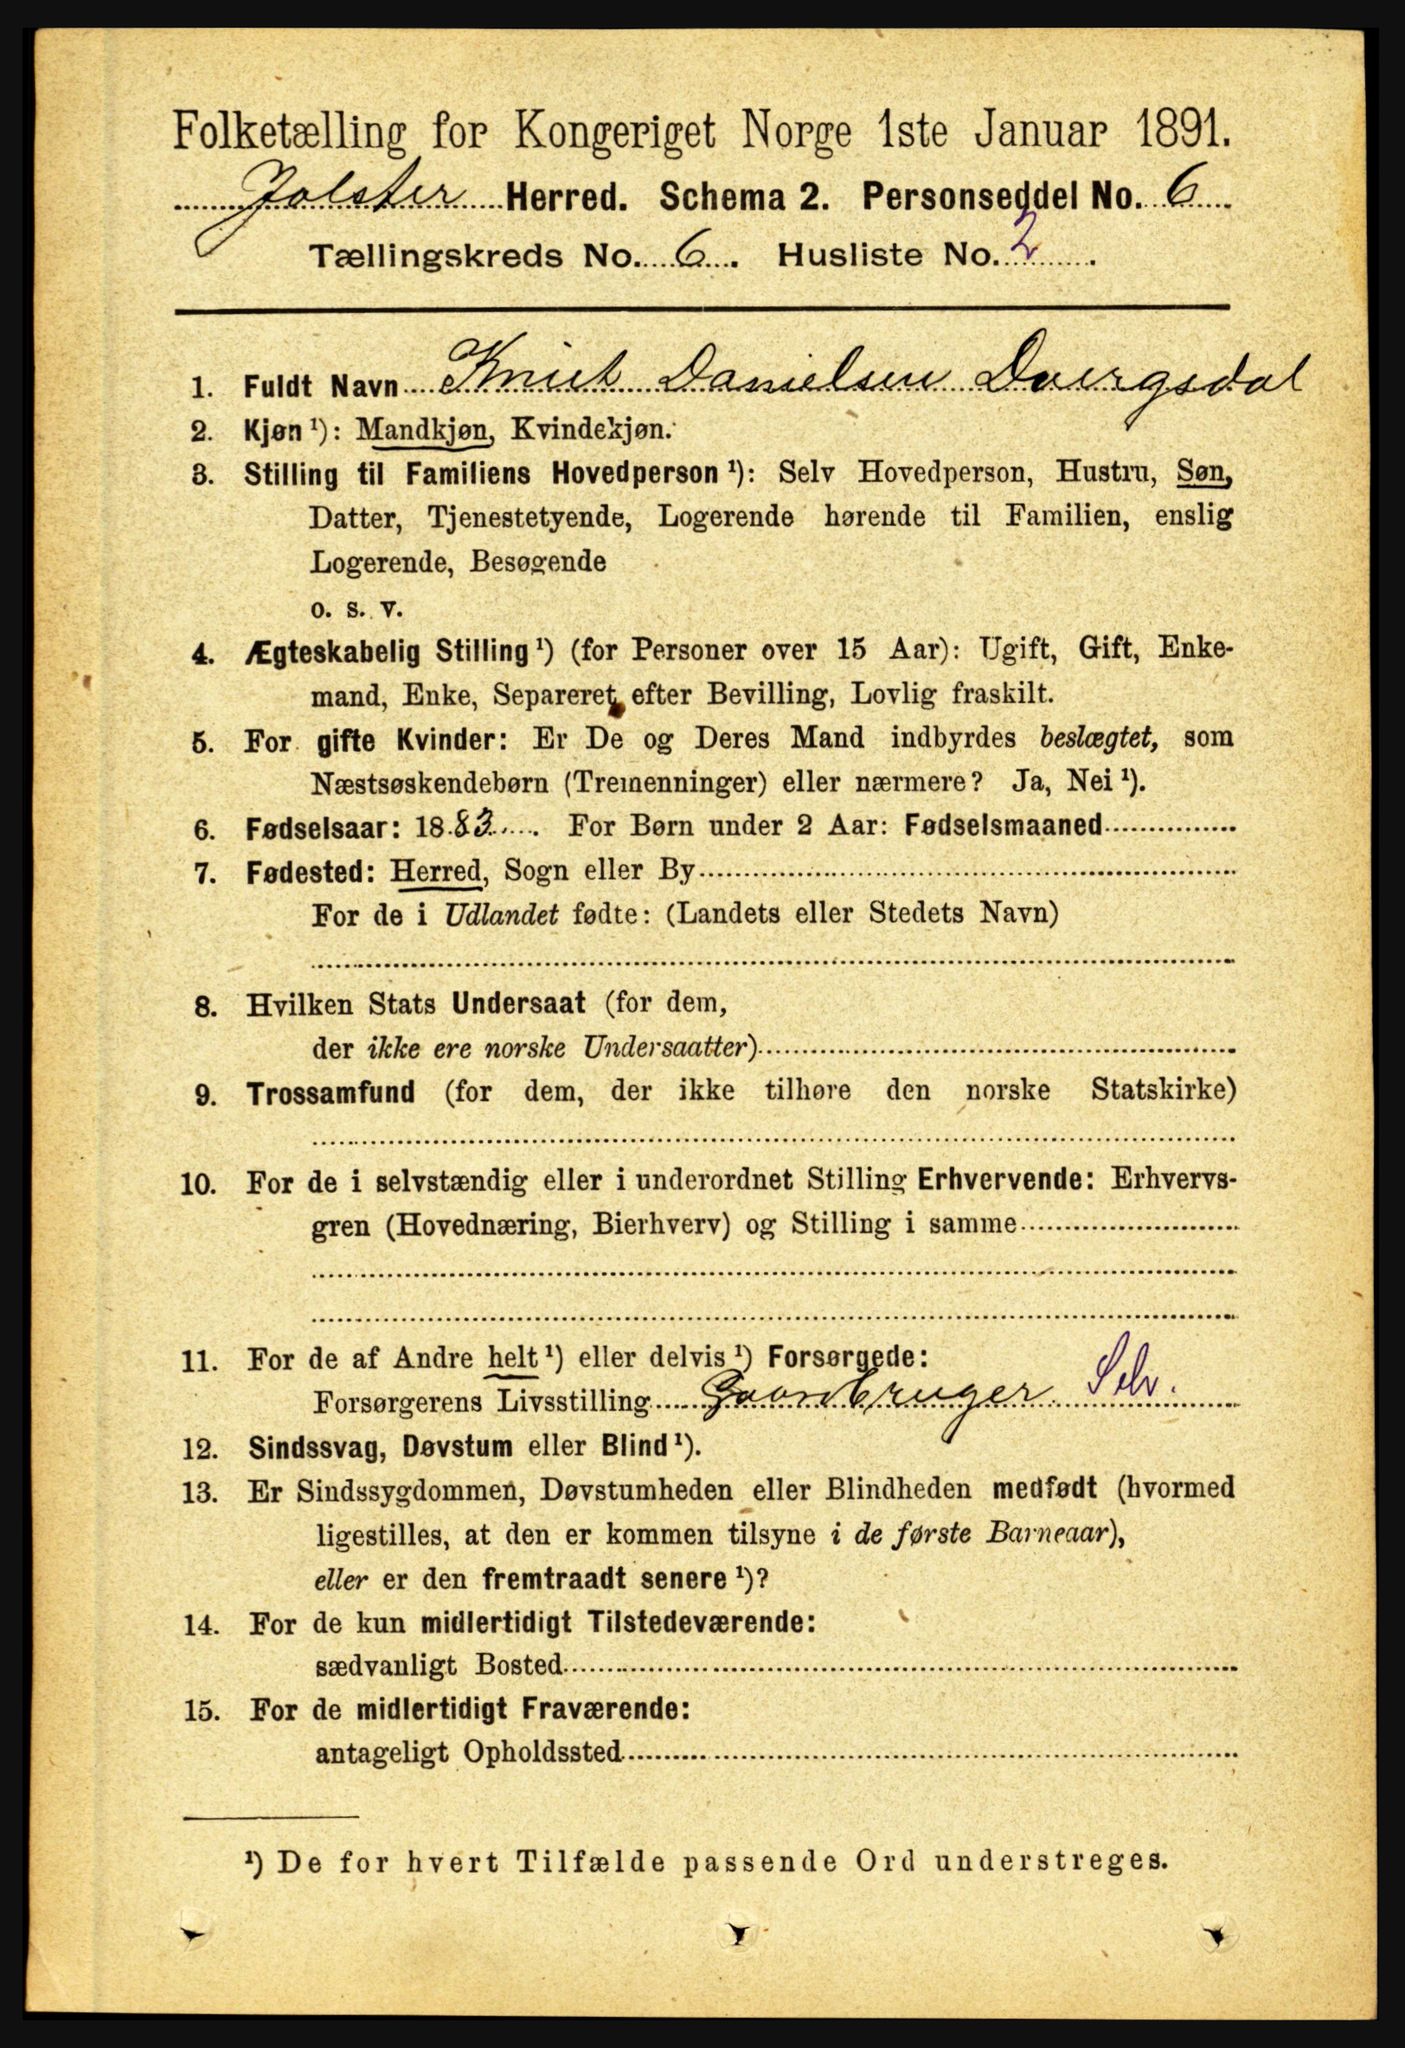 Folketælling for Kongeriget Norge 1ste Januar 1891.
Jolster Herred. Schema 2. Personseddel No. 6
Tællingskreds No. 6. Husliste No. 2.
1. Fuldt Navn Knut Danielsen Dvergsdal
2. Kjøn ¹): Mandkjøn, Kvindekjøn.
3. Stilling til Familiens Hovedperson ¹): Selv Hovedperson, Hustru, Søn,
Datter, Tjenestetyende, Logerende hørende til Familien, enslig
Logerende, Besøgende
o. s. v.
4. Ægteskabelig Stilling ¹) (for Personer over 15 Aar): Ugift, Gift, Enke-
mand, Enke, Separeret efter Bevilling, Lovlig fraskilt.
5. For gifte Kvinder: Er De og Deres Mand indbyrdes beslægtet, som
Næstsøskendebørn (Tremenninger) eller nærmere? Ja, Nei ¹).
6. Fødselsaar: 1883. For Børn under 2 Aar: Fødselsmaaned
7. Fødested: Herred, Sogn eller By
For de i Udlandet fødte: (Landets eller Stedets Navn)
8. Hvilken Stats Undersaat (for dem,
der ikke ere norske Undersaatter)
9. Trossamfund (for dem, der ikke tilhøre den norske Statskirke)
10. For de i selvstændig eller i underordnet Stilling Erhvervende: Erhvervs-
gren (Hovednæring, Bierhverv) og Stilling i samme
11. For de af Andre helt ¹) eller delvis ¹) Forsørgede:
Forsørgerens Livsstilling Gaardbruger Selv.
12. Sindssvag, Døvstum eller Blind ¹).
13. Er Sindssygdommen, Døvstumheden eller Blindheden medfødt (hvormed
ligestilles, at den er kommen tilsyne i de første Barneaar),
eller er den fremtraadt senere ¹)?
14. For de kun midlertidigt Tilstedeværende:
sædvanligt Bosted
15. For de midlertidigt Fraværende:
antageligt Opholdssted
¹) De for hvert Tilfælde passende Ord understreges.